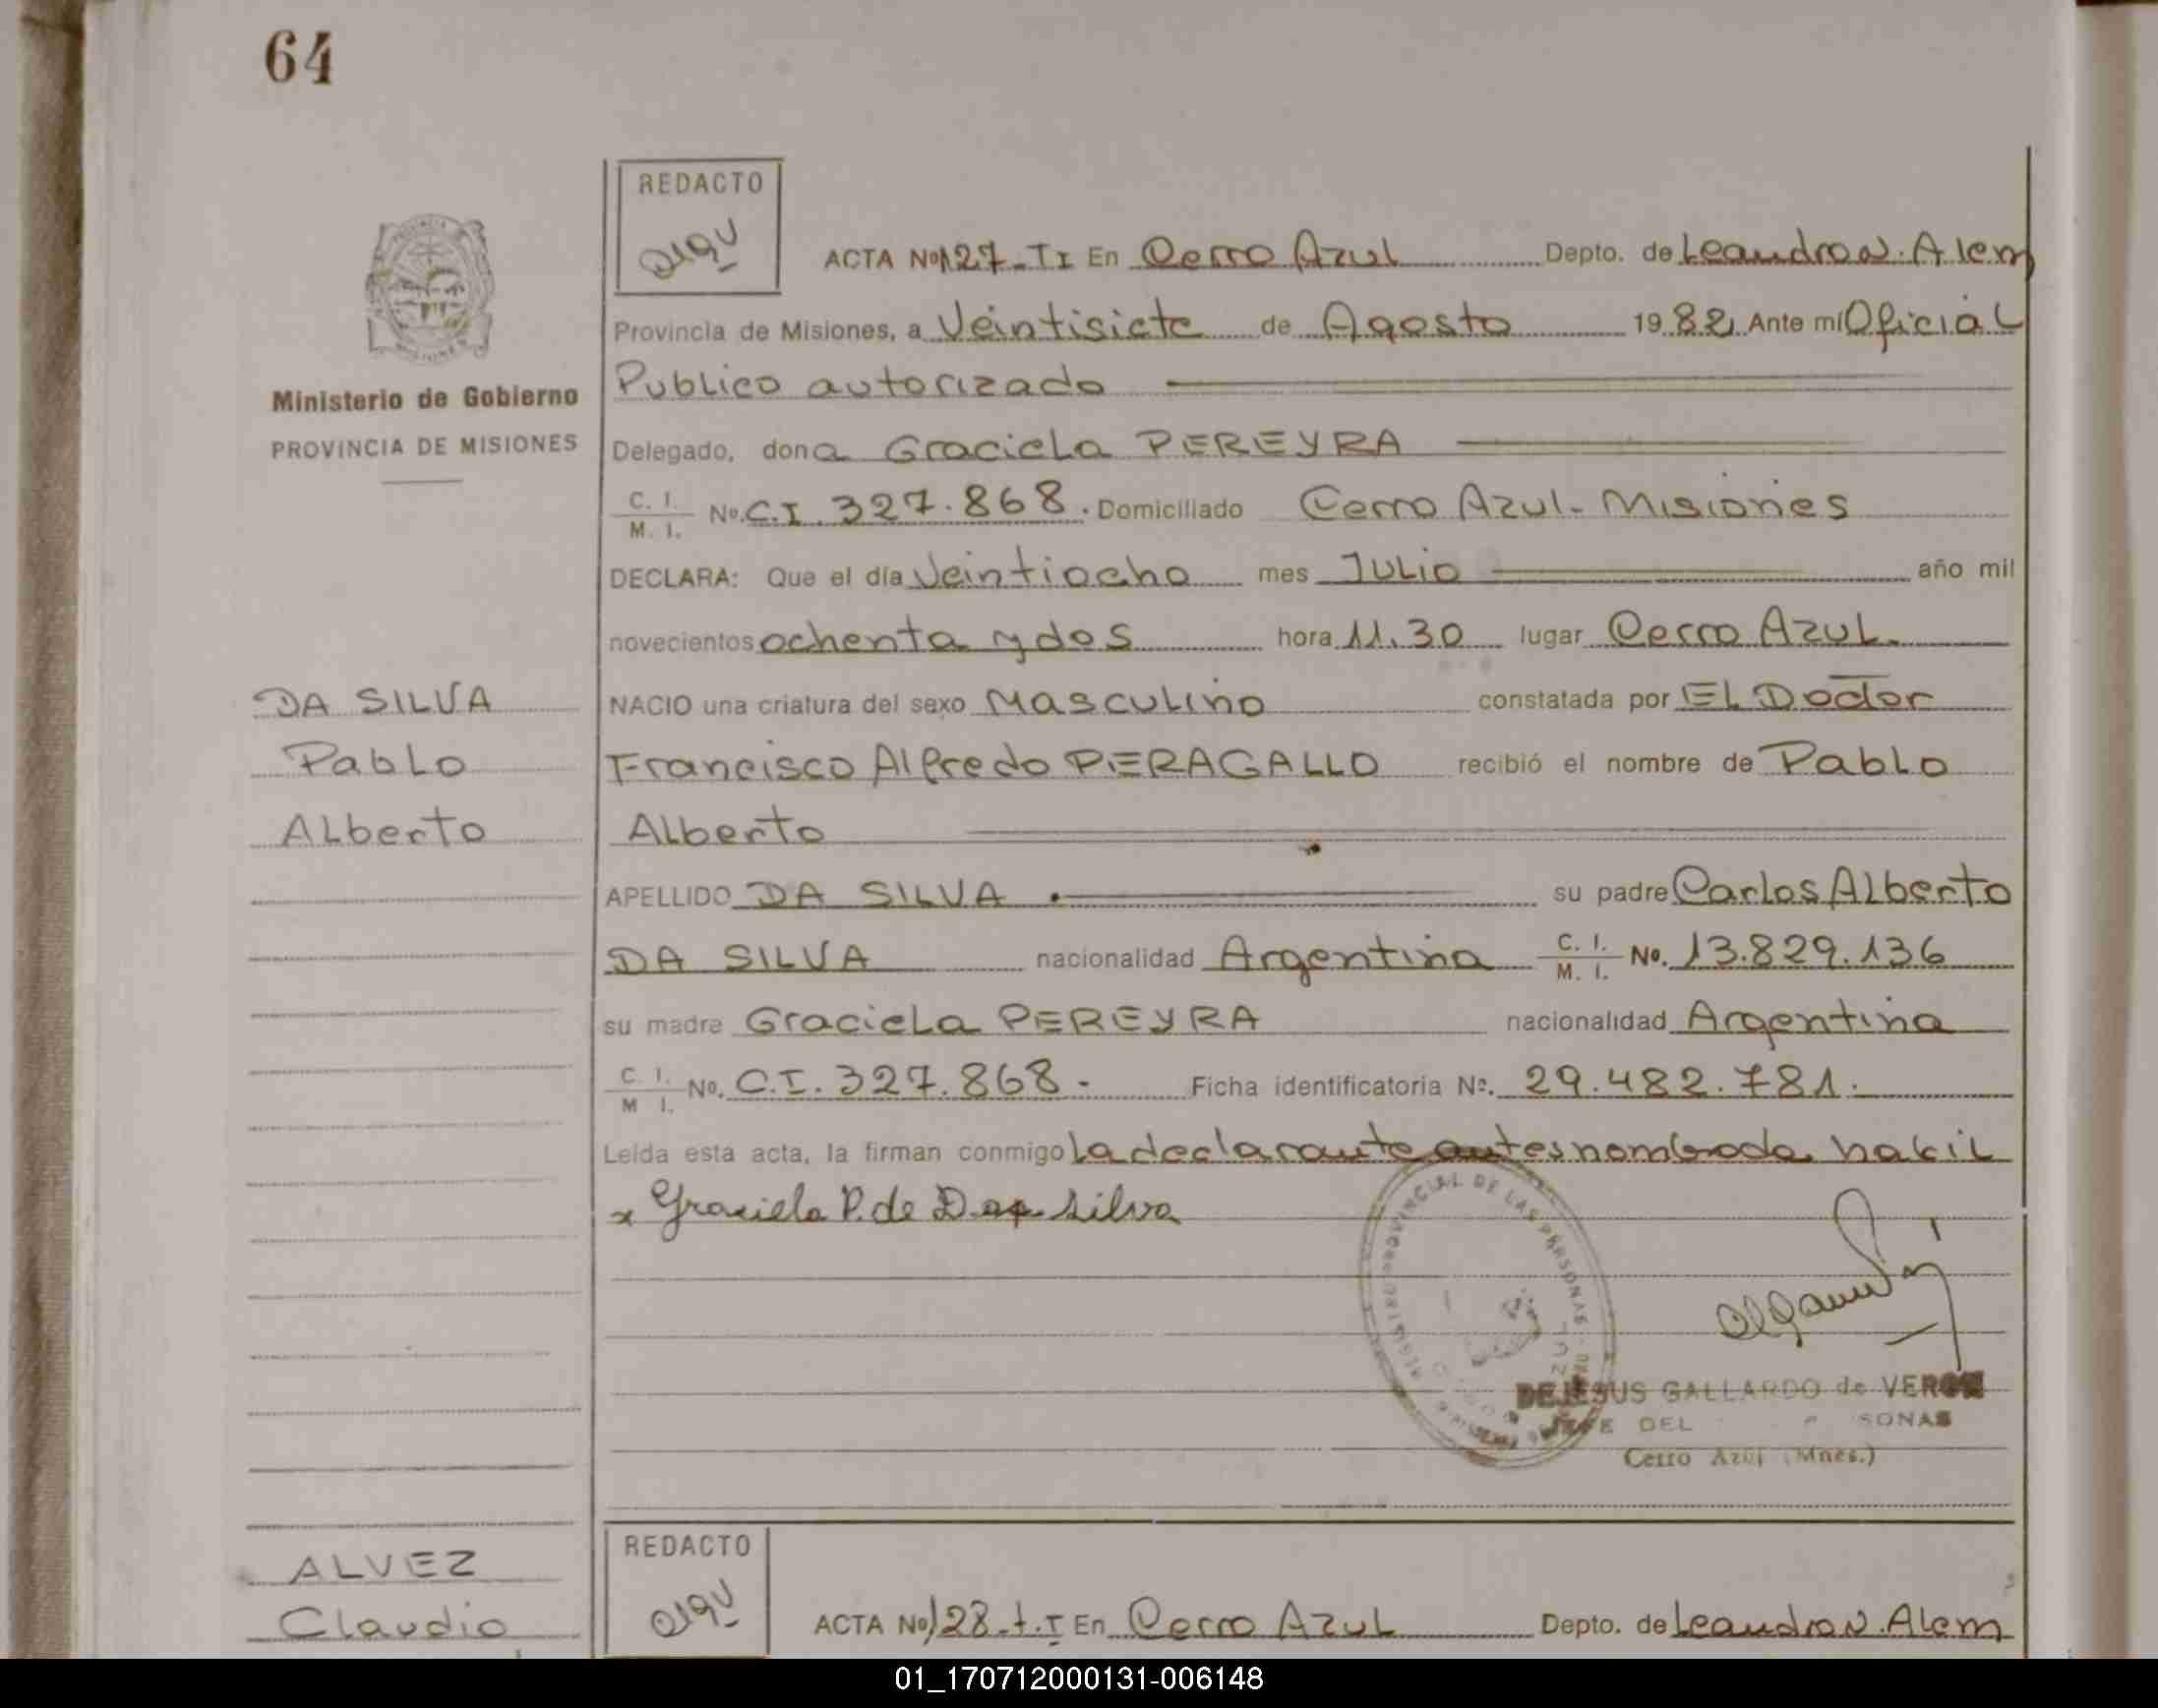 64
REDACTO
ACTA Nº 127-TI En Cerro Azul Depto. de Leandro N. Alem
Provincia de Misiones, a Veintisiete de Agosto 1982 Ante mi Oficial
Publico autorizado
Ministerio de Gobierno
PROVINCIA DE MISIONES
Delegado, dona Graciela PEREYRA
C. I. M. I. Nº. C.I. 327.868. Domiciliado Cerro Azul- Misiones
DECLARA: Que el día Veintiocho mes Julio año mil
novecientos ochenta y dos hora 11.30 lugar Cerro Azul.
DA SILVA
Pablo
Alberto
NACIO una criatura del sexo Masculino constatada por El Doctor
Francisco Alfredo PERAGALLO recibió el nombre de Pablo
Alberto
APELLIDO DA SILVA su padre Carlos Alberto
DA SILVA nacionalidad Argentina C. I. M. I. Nº. 13.829.136
su madre Graciela PEREYRA nacionalidad Argentina
C. I. M I. Nº. C.I. 327.868. Ficha identificatoria Nº. 29.482.781.
Leída esta acta, la firman conmigo la declarante antes nombrada habil
x Graciela P. de Da Silva
PROVINCIAL DE LAS PERSONAS
DEJESUS GALLARDO de VERON
JEFE DEL SONAS
Cerro Azul (Mnes.)
ALVEZ
Claudio
REDACTO
ACTA Nº 128-t.I En Cerro Azul Depto. de Leandro N. Alem
01_170712000131-006148